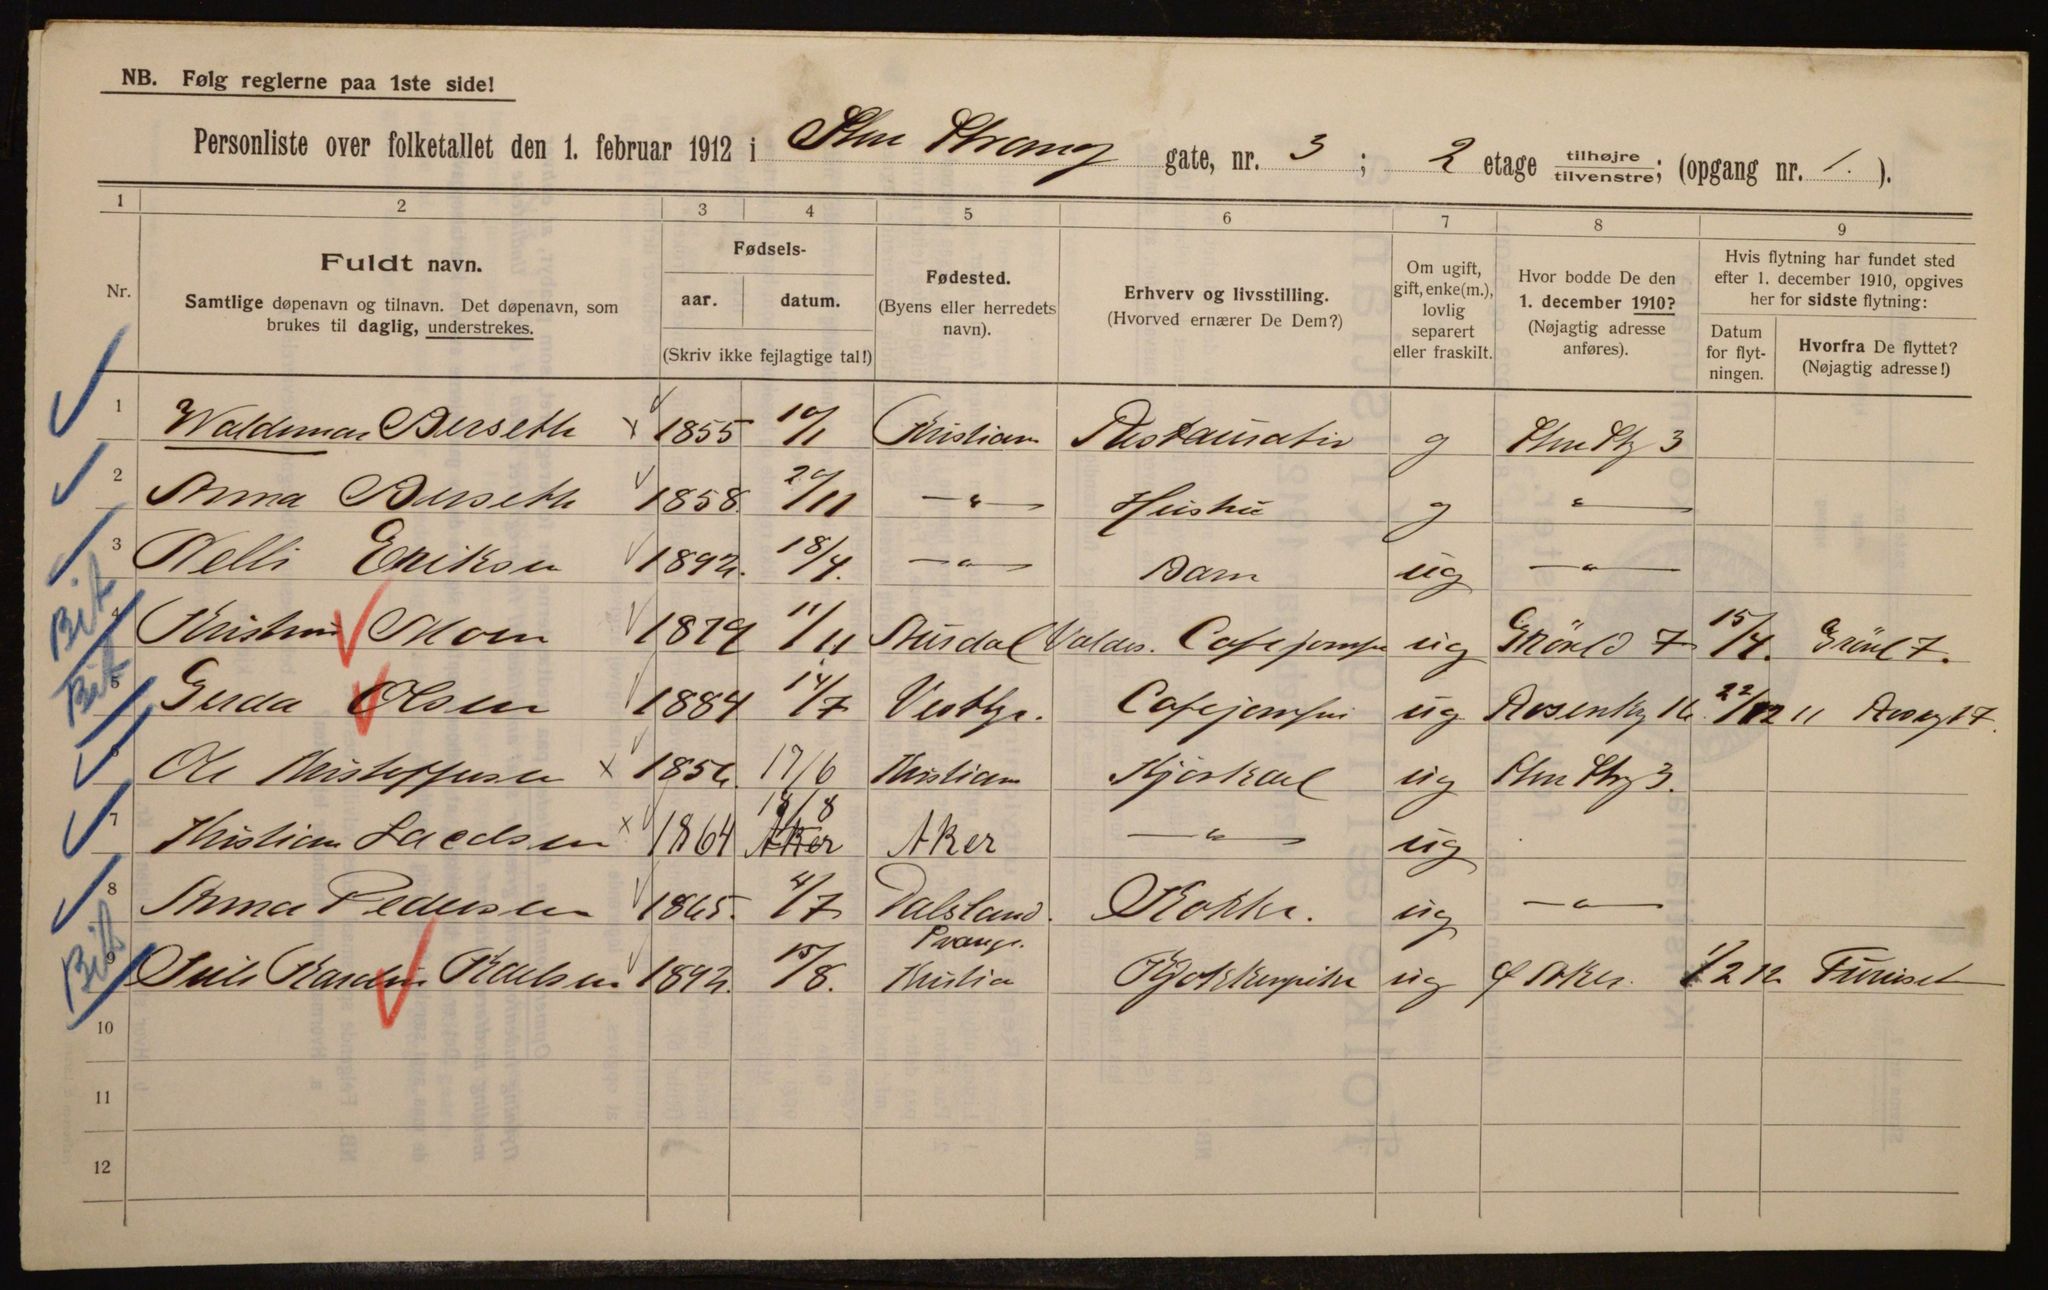 NB. Følg reglerne paa 1ste side!
Personliste over folketallet den 1. februar 1912 i Sten Strang gate, nr. 3 ; 2 etage tilhøjre tilvenstre; (opgang nr. 1. ).
1 2 3 4 5 6 7 8 9
Nr.
Fuldt navn.
Samtlige døpenavn og tilnavn. Det døpenavn, som
brukes til daglig, understrekes.
Fødsels-
aar. datum.
(Skriv ikke fejlagtige tal!)
Fødested.
(Byens eller herredets
navn).
Erhverv og livsstilling.
(Hvorved ernærer De Dem?)
Om ugift,
gift, enke(m.),
lovlig
separert
eller fraskilt.
Hvor bodde De den
1. december 1910?
(Nøjagtig adresse
anføres).
Hvis flytning har fundet sted
efter 1. december 1910, opgives
her for sidste flytning:
Datum
for flyt-
ningen.
Hvorfra De flyttet?
(Nøjagtig adresse!)
1 Waldemar Berseth x 1855 10/1 Kristiam g 3
2 Anna Berseth 1858 20/11 -"- Hustru g "
3 Nelli Eriksen 1892. 18/4. -"- Barn ug -"-
4 Moen 1879 11/11 Aurdal Valdes. ug 7 15/4. 7.
5 Gerda Olsen 1884 14/7 Vestby. ug 16 22/12 11
6 Ole Kristoffersen x 1856. 17/6 Kristiam Kjørkarl ug 3.
7 Kristian x 1864 18/8 Aker Aker -"- ug
8 Anna Pedersen 1865. 4/7 Dalsland. Kokke. ug -"-
9 Karlsen 1892. 15/8. Kristia Kjøkkenpike ug Ø Aker. 1/2 12 Furuset
10
11
12
Bit
Bit
Bit